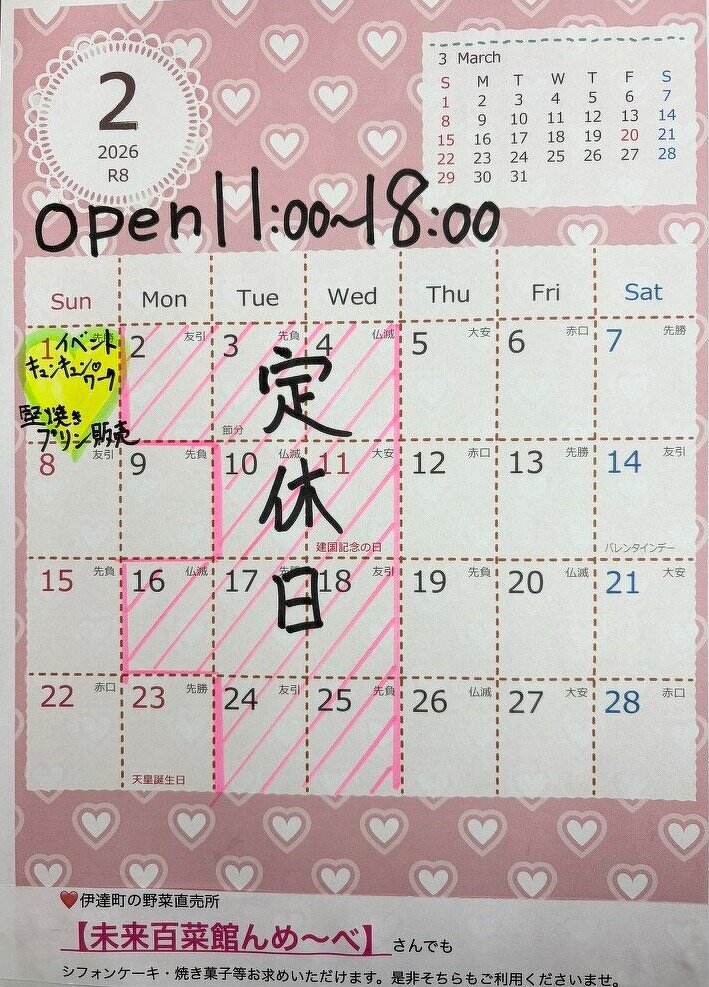 2
2026
R8
3 March
S M T W T F S
1 2 3 4 5 6 7
8 9 10 11 12 13 14
15 16 17 18 19 20 21
22 23 24 25 26 27 28
29 30 31
open 11:00~18:00
Sun Mon Tue Wed Thu Fri Sat
1 2 友引 3 先負 4 仏滅 5 大安 6 赤口 7 先勝
イベント
キュンキュン♡
ワーク
堅焼き
プリン販売
節分
定休日
8 友引 9 先負 10 仏滅 11 大安 12 赤口 13 先勝 14 友引
建国記念の日 バレンタインデー
15 先負 16 仏滅 17 18 友引 19 先負 20 仏滅 21 大安
22 赤口 23 先勝 24 友引 25 先負 26 仏滅 27 大安 28 赤口
天皇誕生日
❤伊達町の野菜直売所
【未来百菜館んめ~べ】さんでも
シフォンケーキ・焼き菓子等お求めいただけます。是非そちらもご利用くださいませ。